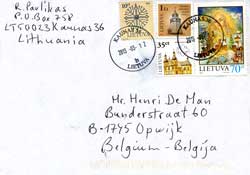 R. Pavlikas
P.O Box 758
LT50023 Kaunas 36
Lithuania
1 Lt
35ct
LIETUVA
LIETUVA 70
KAUNAS
Mr. Henri De Man
Bunderstraat 60
B-1745 Opwijk
Belgium - Belgija